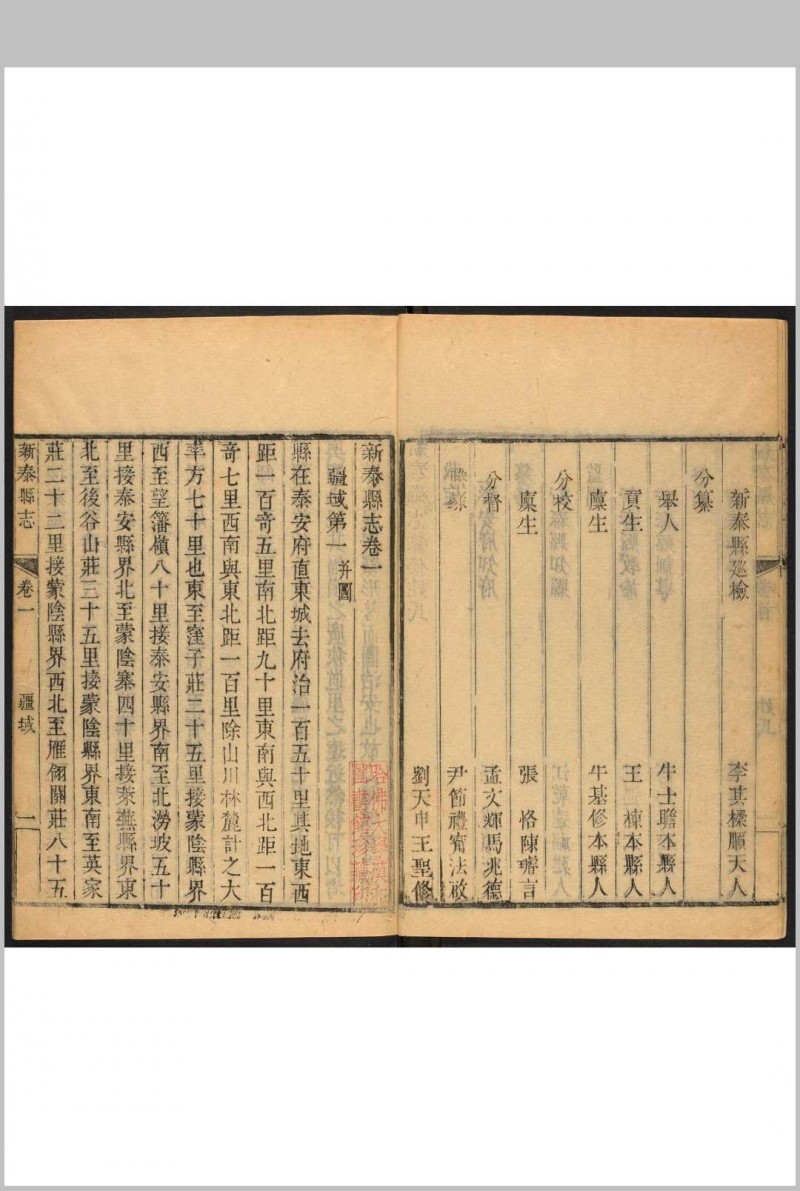 新泰縣巡檢 李其樑順天人
分纂
舉人 牛士瞻本縣人
貢生 王 棟本縣人
廩生 牛基修本縣人
分校
廩生 張 恪陳 言
分督 孟文輝馬兆德
尹節禮甯法敬
劉天申王聖修
新泰縣志卷一
疆域第一 并圖
縣在泰安府直東城去府治一百五十里其地東西
距一百竒五里南北距九十里東南與西北距一百
竒七里西南與東北距一百里除山川林麓計之大
率方七十里也東至窪子莊二十五里接蒙陰縣界
西至望籓嶺八十里接泰安縣界南至北澇坡五十
里接泰安縣界北至蒙陰寨四十里接萊蕪縣界東
北至後谷山莊三十五里接蒙陰縣界東南至英家
莊二十二里接蒙陰縣界西北至雁翎關莊八十五
新泰縣志 卷一 疆域 一